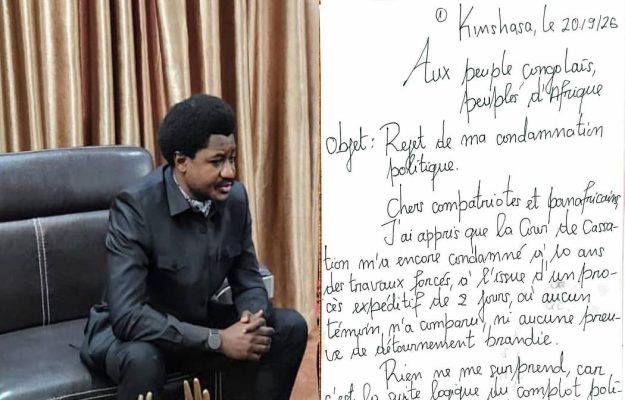 ① Kinshasa, le 20/9/26
Aux peuple congolais,
peuples d'Afrique
Objet : Rejet de ma condamnation
politique.
Chers compatriotes et panafricains,
J'ai appris que la Cour de Cassa-
tion m'a encore condamné à 10 ans
des travaux forcés, à l'issue d'un pro-
cès expéditif de 2 jours, où aucun
témoin n'a comparu, ni aucune preu-
ve de détournement brandie.
Rien ne me surprend, car
c'est la suite logique du complot poli-